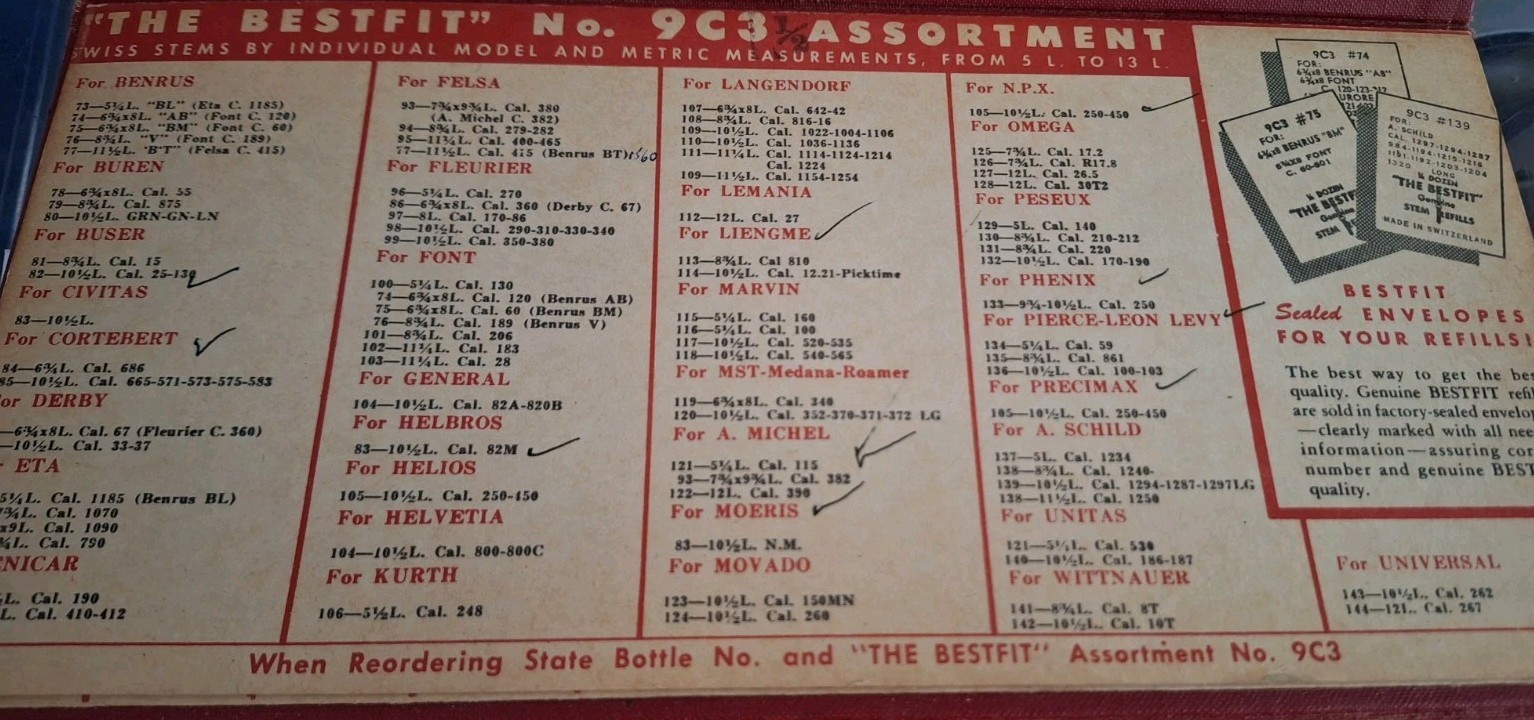 "THE BESTFIT" No. 9C3 1/2 ASSORTMENT
SWISS STEMS BY INDIVIDUAL MODEL AND METRIC MEASUREMENTS, FROM 5 L. TO 13 L.
For BENRUS
73—5¼L. "BL" (Eta C. 1185)
74—6¾x8L. "AB" (Font C. 120)
75—6¾x8L. "BM" (Font C. 60)
76—8¾L. "V" (Font C. 189)
77—11½L. "BT" (Felsa C. 415)
For BUREN
78—6¾x8L. Cal. 55
79—8¾L. Cal. 875
80—10½L. GRN-GN-LN
For BUSER
81—8¾L. Cal. 15
82—10½L. Cal. 25-139
For CIVITAS
83—10½L.
For CORTEBERT
84—6¾L. Cal. 686
85—10½L. Cal. 665-571-573-575-583
For DERBY
—6¾x8L. Cal. 67 (Fleurier C. 360)
—10½L. Cal. 33-37
ETA
5¼L. Cal. 1185 (Benrus BL)
¾L. Cal. 1070
x9L. Cal. 1090
¾L. Cal. 790
ENICAR
L. Cal. 190
L. Cal. 410-412
For FELSA
93—7¾x9¾L. Cal. 380
(A. Michel C. 382)
94—8¾L. Cal. 279-282
95—11¼L. Cal. 400-465
77—11½L. Cal. 415 (Benrus BT)
For FLEURIER
96—5¼L. Cal. 270
86—6¾x8L. Cal. 360 (Derby C. 67)
97—8L. Cal. 170-86
98—10½L. Cal. 290-310-330-340
99—10½L. Cal. 350-380
For FONT
100—5¼L. Cal. 130
74—6¾x8L. Cal. 120 (Benrus AB)
75—6¾x8L. Cal. 60 (Benrus BM)
76—8¾L. Cal. 189 (Benrus V)
101—8¾L. Cal. 206
102—11¼L. Cal. 183
103—11¼L. Cal. 28
For GENERAL
104—10½L. Cal. 82A-820B
For HELBROS
83—10½L. Cal. 82M
For HELIOS
105—10½L. Cal. 250-450
For HELVETIA
104—10½L. Cal. 800-800C
For KURTH
106—5½L. Cal. 248
For LANGENDORF
107—6¾x8L. Cal. 642-42
108—8¾L. Cal. 816-16
109—10½L. Cal. 1022-1004-1106
110—10½L. Cal. 1036-1136
111—11¼L. Cal. 1114-1124-1214
Cal. 1224
109—11½L. Cal. 1154-1254
For LEMANIA
112—12L. Cal. 27
For LIENGME
113—8¾L. Cal 810
114—10½L. Cal. 12.21-Picktime
For MARVIN
115—5¼L. Cal. 160
116—5¼L. Cal. 100
117—10½L. Cal. 520-535
118—10½L. Cal. 540-565
For MST-Medana-Roamer
119—6¾x8L. Cal. 340
120—10½L. Cal. 352-370-371-372 LG
For A. MICHEL
121—5¼L. Cal. 115
93—7¾x9¾L. Cal. 382
122—12L. Cal. 390
For MOERIS
83—10½L. N.M.
For MOVADO
123—10½L. Cal. 150MN
124—10½L. Cal. 260
For N.P.X.
105—10½L. Cal. 250-450
For OMEGA
125—7¾L. Cal. 17.2
126—7¾L. Cal. R17.8
127—12L. Cal. 26.5
128—12L. Cal. 30T2
For PESEUX
129—5L. Cal. 140
130—8¾L. Cal. 210-212
131—8¾L. Cal. 220
132—10½L. Cal. 170-190
For PHENIX
133—9¾-10½L. Cal. 250
For PIERCE-LEON LEVY
134—5¼L. Cal. 59
135—8¾L. Cal. 861
136—10½L. Cal. 100-103
For PRECIMAX
105—10½L. Cal. 250-450
For A. SCHILD
137—5L. Cal. 1234
138—8¾L. Cal. 1240-
139—10½L. Cal. 1294-1287-1297LG
138—11½L. Cal. 1250
For UNITAS
121—5¼L. Cal. 530
140—10½L. Cal. 186-187
For WITTNAUER
141—8¾L. Cal. 8T
142—10½L. Cal. 10T
9C3 #74
FOR:
6¾x8 BENRUS "AB"
6¾x8 FONT
9C3 #75
FOR:
6¾x8 BENRUS "BM"
6¾x8 FONT
C. 60-601
½ DOZEN
STEM
9C3 #139
FOR:
A. SCHILD
CAL. 1297-1294-1287
LONG
½ DOZEN
"THE BESTFIT"
Genuine
STEM REFILLS
MADE IN SWITZERLAND
BESTFIT
Sealed ENVELOPES
FOR YOUR REFILLS!
The best way to get the bes
quality. Genuine BESTFIT refil
are sold in factory-sealed envelop
—clearly marked with all nee
information—assuring cor
number and genuine BEST
quality.
For UNIVERSAL
143—10½L. Cal. 262
144—12L. Cal. 267
When Reordering State Bottle No. and "THE BESTFIT" Assortment No. 9C3